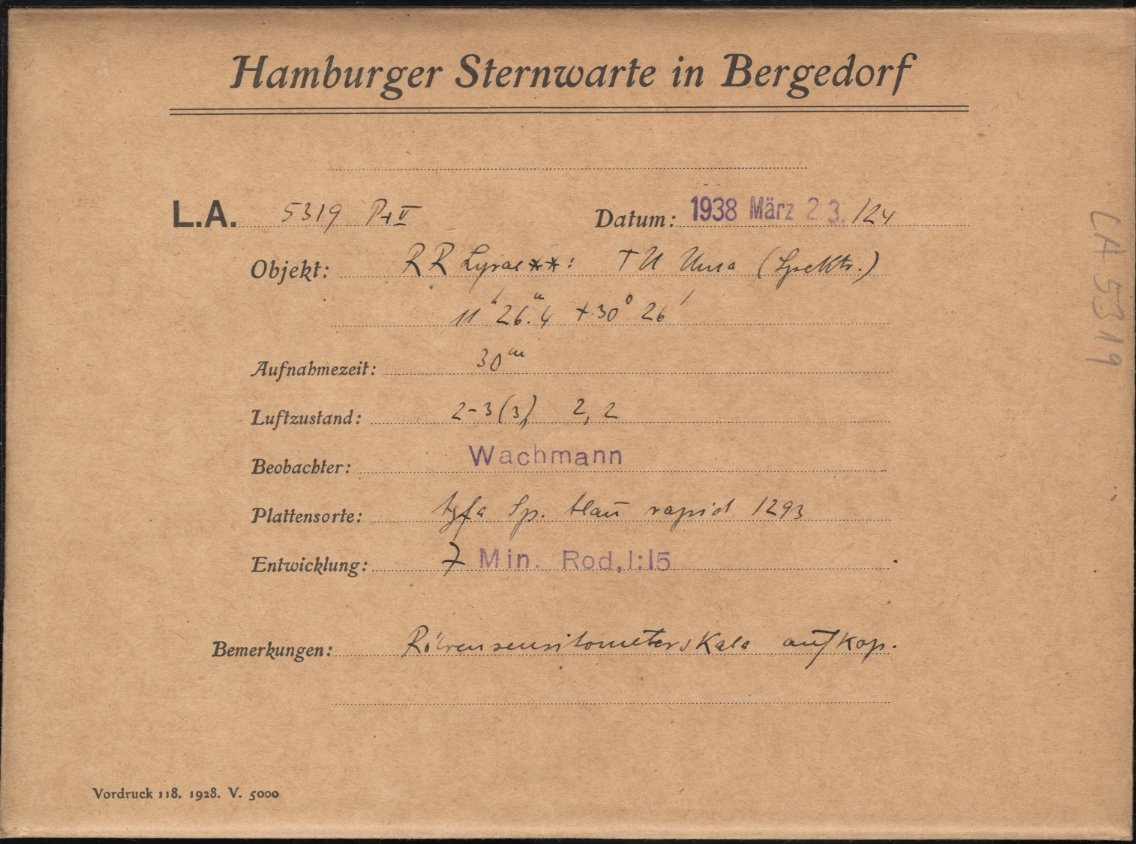 Hamburger Sternwarte in Bergedorf
L.A. 5319 P+V Datum: 1938 März 23./24
Objekt: RR Lyrae **: TU Uma (Spektr.)
11h 26m.4 +30° 26'
Aufnahmezeit: 30m
Luftzustand: 2-3(3) 2,2
Beobachter: Wachmann
Plattensorte: Agfa Sp. blau rapid 1293
Entwicklung: 7 Min. Rod, 1:15
Bemerkungen: Röhrensensitometerskala aufkop.
Vordruck 118. 1928. V. 5000
LA 5319